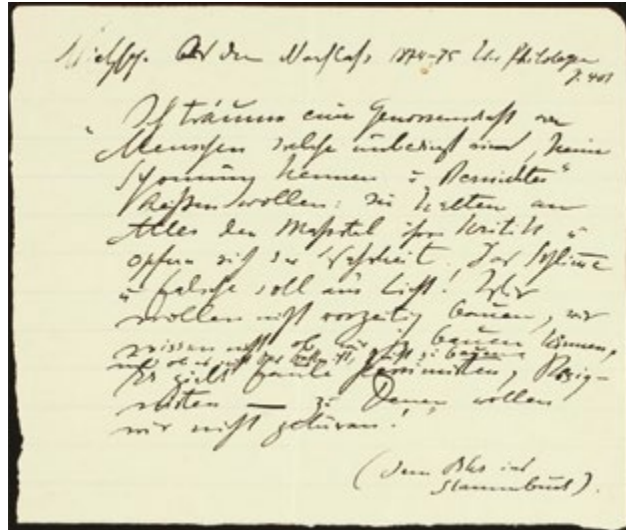 Nietzsche. Aus dem Nachlass 1874-75 Wir Philologen
S. 401
"Ich träume eine Genossenschaft von
Menschen welche unbedingt sind, keine
Schonung kennen u "Vernichter"
heißen wollen: sie halten an
Alles den Maßstab ihrer Kritik u
opfern sich der Wahrheit. Das Schlimme
u falsche soll ans Licht! Wir
wollen nicht vorzeitig bauen, wir
wissen nicht, ob wir je bauen können,
und ob es nicht das Beste ist, nicht zu bauen.
Es giebt faule Pessimisten, Resig-
nisten — zu Denen wollen
wir nicht gehören!
(dem
Stammbuch).